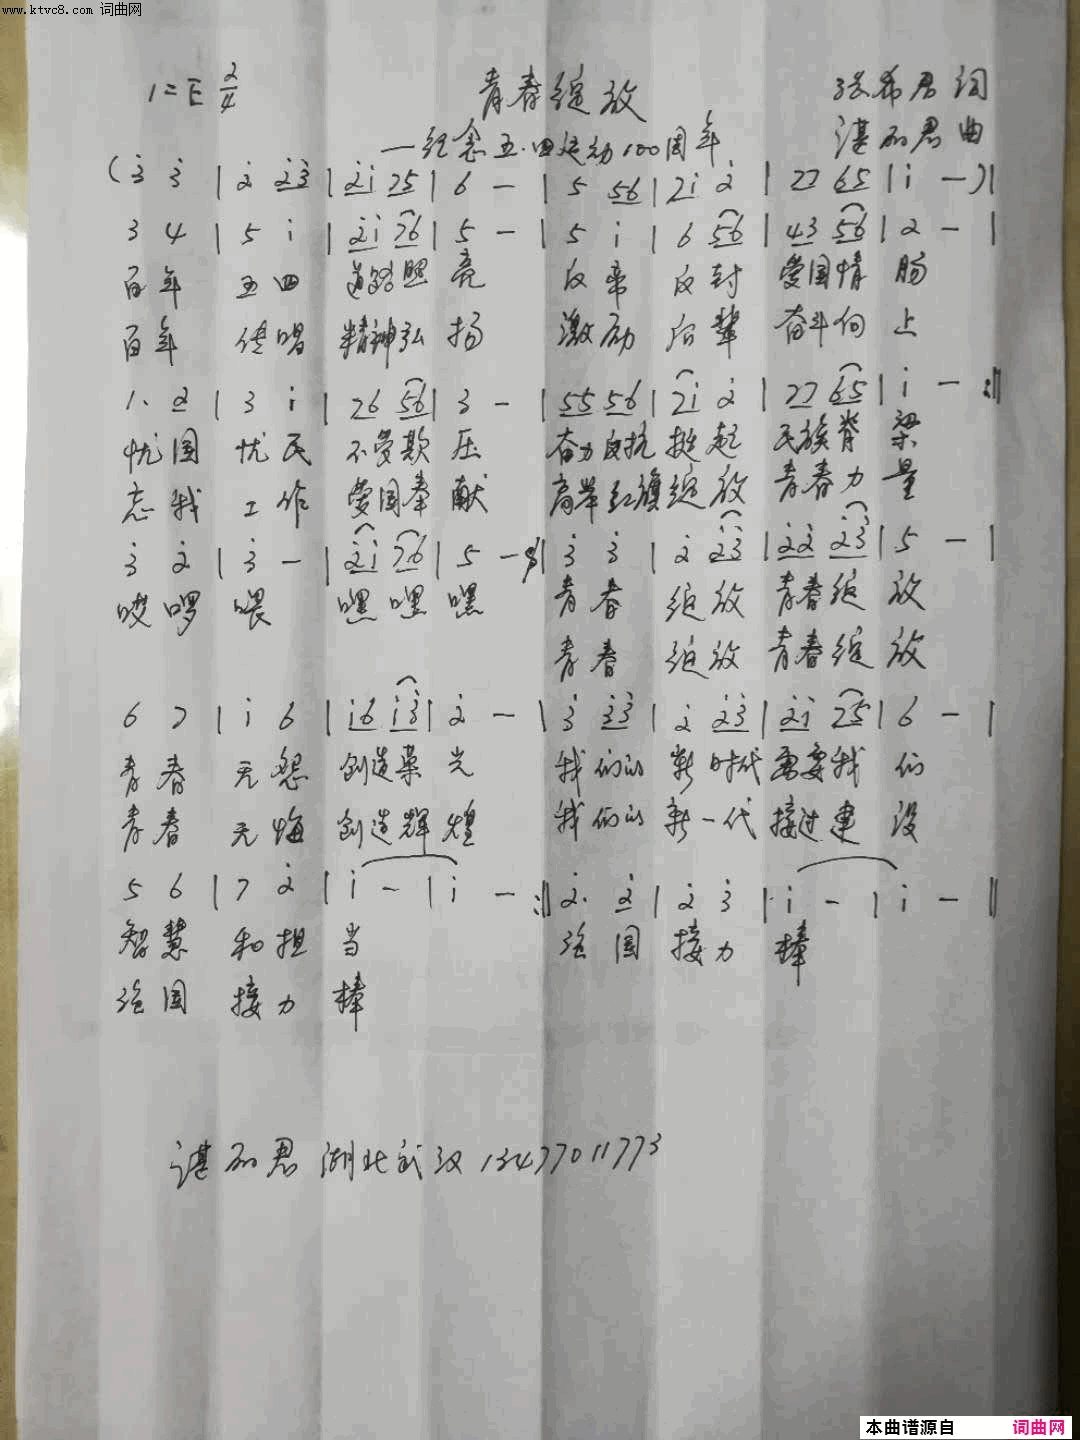 www.ktvc8.com 词曲网
1=E 2/4 青春绽放 张希君词
—纪念五·四运动100周年 谌丽君曲
(3̇ 3̇ | 2̇ 2̇3̇ | 2̇1̇ 75 | 6 - | 5 56 | 71̇ 2̇ | 77 65 | 1̇ - )|
3 4 | 5 1̇ | 2̇1̇ 76 | 5 - | 5 1̇ | 6 56 | 43 56 | 2 - |
百年 五四 道路照亮 反帝 反封 爱国情肠
百年 传唱 精神弘扬 激励后辈 奋斗向上
1. 2 | 3 1̇ | 76 56 | 3 - | 55 56 | 71̇ 2̇ | 77 65 | 1̇ - :||
忧国 忧民 不受欺压 奋力反抗 挺起 民族脊梁
忘我 工作 爱国奉献 高举红旗绽放 青春力量
3̇ 2̇ | 3̇ - | 2̇1̇ 76 | 5 - :|| 3̇ 3̇ | 2̇ 2̇3̇ | 2̇2̇ 2̇3̇ | 5 - |
哎啰 喂 嘿嘿嘿 青春 绽放 青春绽放
青春 绽放 青春绽放
6 7 | 1̇ 6 | 1̇6 1̇3̇ | 2̇ - | 3̇ 3̇3̇ | 2̇ 2̇3̇ | 2̇1̇ 75 | 6 - |
青春 无怨 创造荣光 我们的 新时代 需要我们
青春 无悔 创造辉煌 我们的 新一代 接过建设
5 6 | 7 2̇ | 1̇ - | 1̇ - :|| 2̇. 2̇ | 2̇ 3̇ | 1̇ - | 1̇ - ||
智慧 和担当 强国 接力 棒
强国 接力 棒
谌丽君 湖北武汉 13477011773
本曲谱源自 词曲网